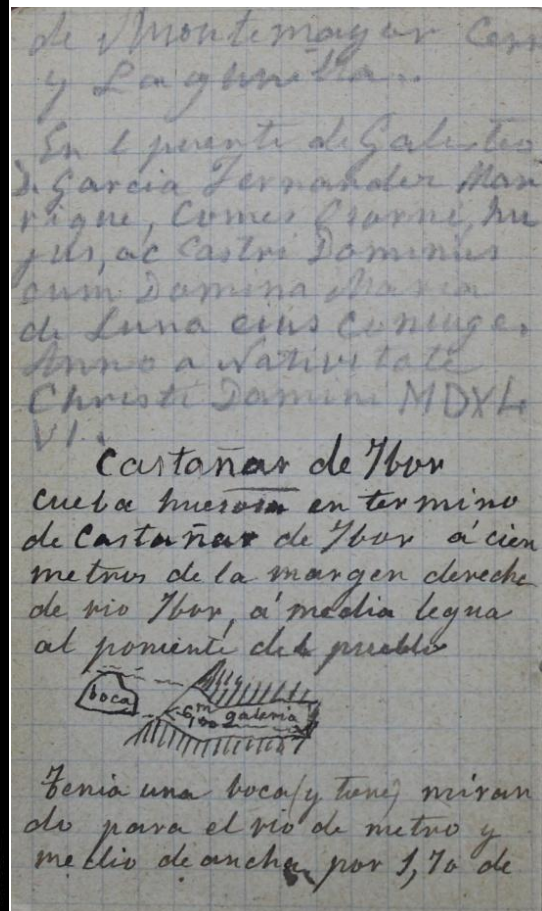 de Montemayor Cerr
y Lagunilla.
En l puente de Galisteo
D. Garcia Fernandez Man
rique, Comes Osorni, hu
jus, ac Castri Dominus
cum Domina Maria
de Luna eius coniuge.
Anno a Nativitate
Christi Domini MDXL
VI.
Castañar de Ibor
cueba huesosa en termino
de Castañar de Ibor á cien
metros de la margen derecha
de rio Ibor, á media legua
al poniente del pueblo
boca
6,00 m galeria
Tenia una boca (y tiene) miran
do para el rio de metro y
medio de ancha por 1,70 de